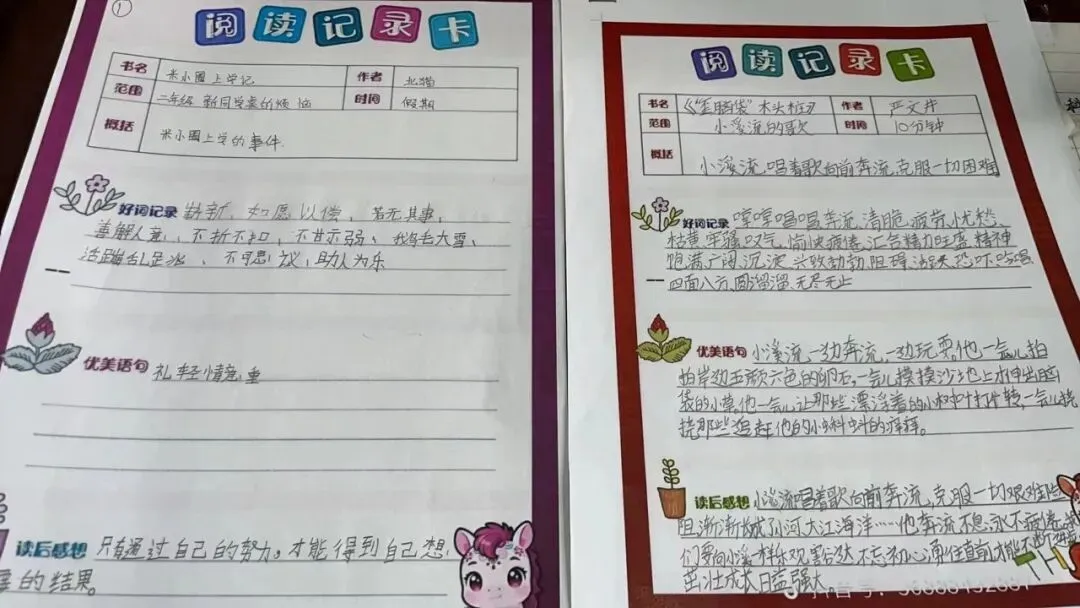 ①
阅读记录卡
书名 米小圈上学记 作者 北猫
范围 二年级 新同学来的烦恼 时间 假期
概括 米小圈上学的事件.
好词记录 崭新、如愿以偿、若无其事、
善解人意、不折不扣、不甘示弱、鹅毛大雪、
活蹦乱跳、不可思议、助人为乐
优美语句 礼轻情意重
读后感想 只有通过自己的努力。才能得到自己想
要的结果。
阅读记录卡
书名 《“歪脑袋”木头桩》 作者 严文井
范围 小溪流的歌 时间 10分钟
概括 小溪流,唱着歌向前奔流,克服一切困难
好词记录 哼哼唱唱、奔流、清脆、疲劳、忧愁、
枯黄、牢骚、叹气、愉快、疲倦、汇合、精力旺盛、精神
饱满、广阔、沉没、兴致勃勃、阻碍、消失、恐吓
四面八方、圆溜溜、无尽无止
优美语句 小溪流一边奔流,一边玩耍。他一会儿拍
拍岸边五颜六色的卵石,一会儿摸摸沙地上才伸出脑
袋的小草。他一会儿让那些漂浮着的小树叶打个转,一会儿挠
挠那些追赶他的小蝌蚪的痒痒。
读后感想 小溪流唱着歌向前奔流,克服一切艰难险
阻,渐渐长成了小河大江海洋……他奔流不息,永不疲倦
们要向小溪一样乐观豁达,不忘初心,勇往直前,才能不断
茁壮成长,日益强大。
抖音号: